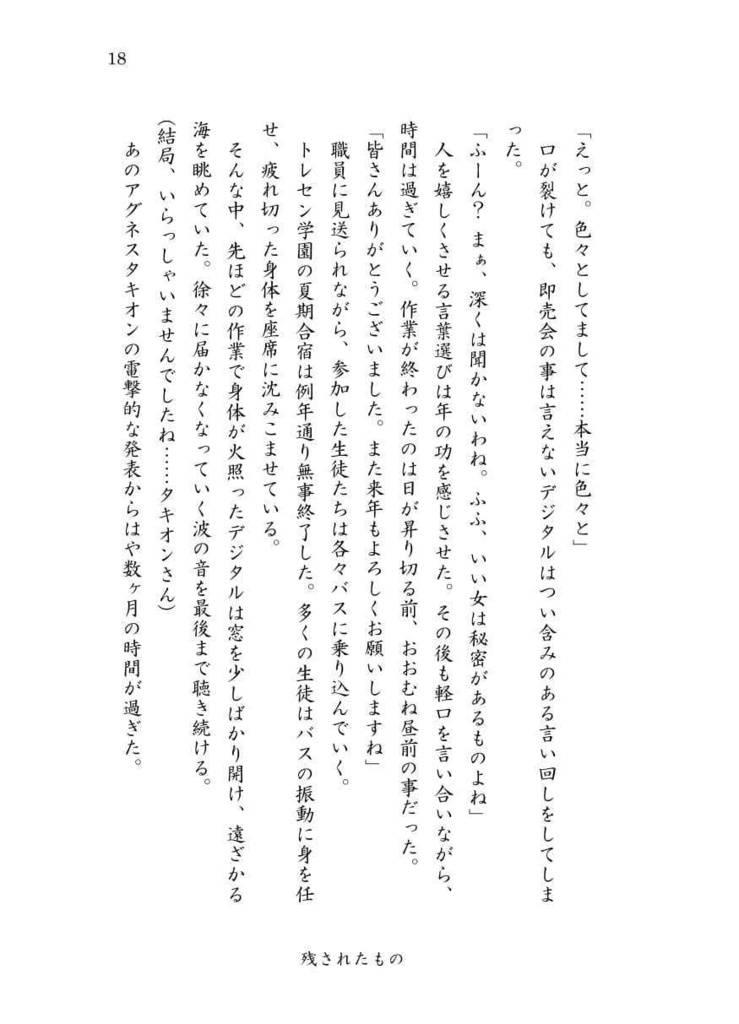 18
「えっと。色々としてまして……本当に色々と」
口が裂けても、即売会の事は言えないデジタルはつい含みのある言い回しをしてしま
った。
「ふーん？ まぁ、深くは聞かないわね。ふふ、いい女は秘密があるものよね」
人を嬉しくさせる言葉選びは年の功を感じさせた。その後も軽口を言い合いながら、
時間は過ぎていく。作業が終わったのは日が昇り切る前、おおむね昼前の事だった。
「皆さんありがとうございました。また来年もよろしくお願いしますね」
職員に見送られながら、参加した生徒たちは各々バスに乗り込んでいく。
トレセン学園の夏期合宿は例年通り無事終了した。多くの生徒はバスの振動に身を任
せ、疲れ切った身体を座席に沈みこませている。
そんな中、先ほどの作業で身体が火照ったデジタルは窓を少しばかり開け、遠ざかる
海を眺めていた。徐々に届かなくなっていく波の音を最後まで聴き続ける。
(結局、いらっしゃいませんでしたね……タキオンさん)
あのアグネスタキオンの電撃的な発表からはや数ヶ月の時間が過ぎた。
残されたもの